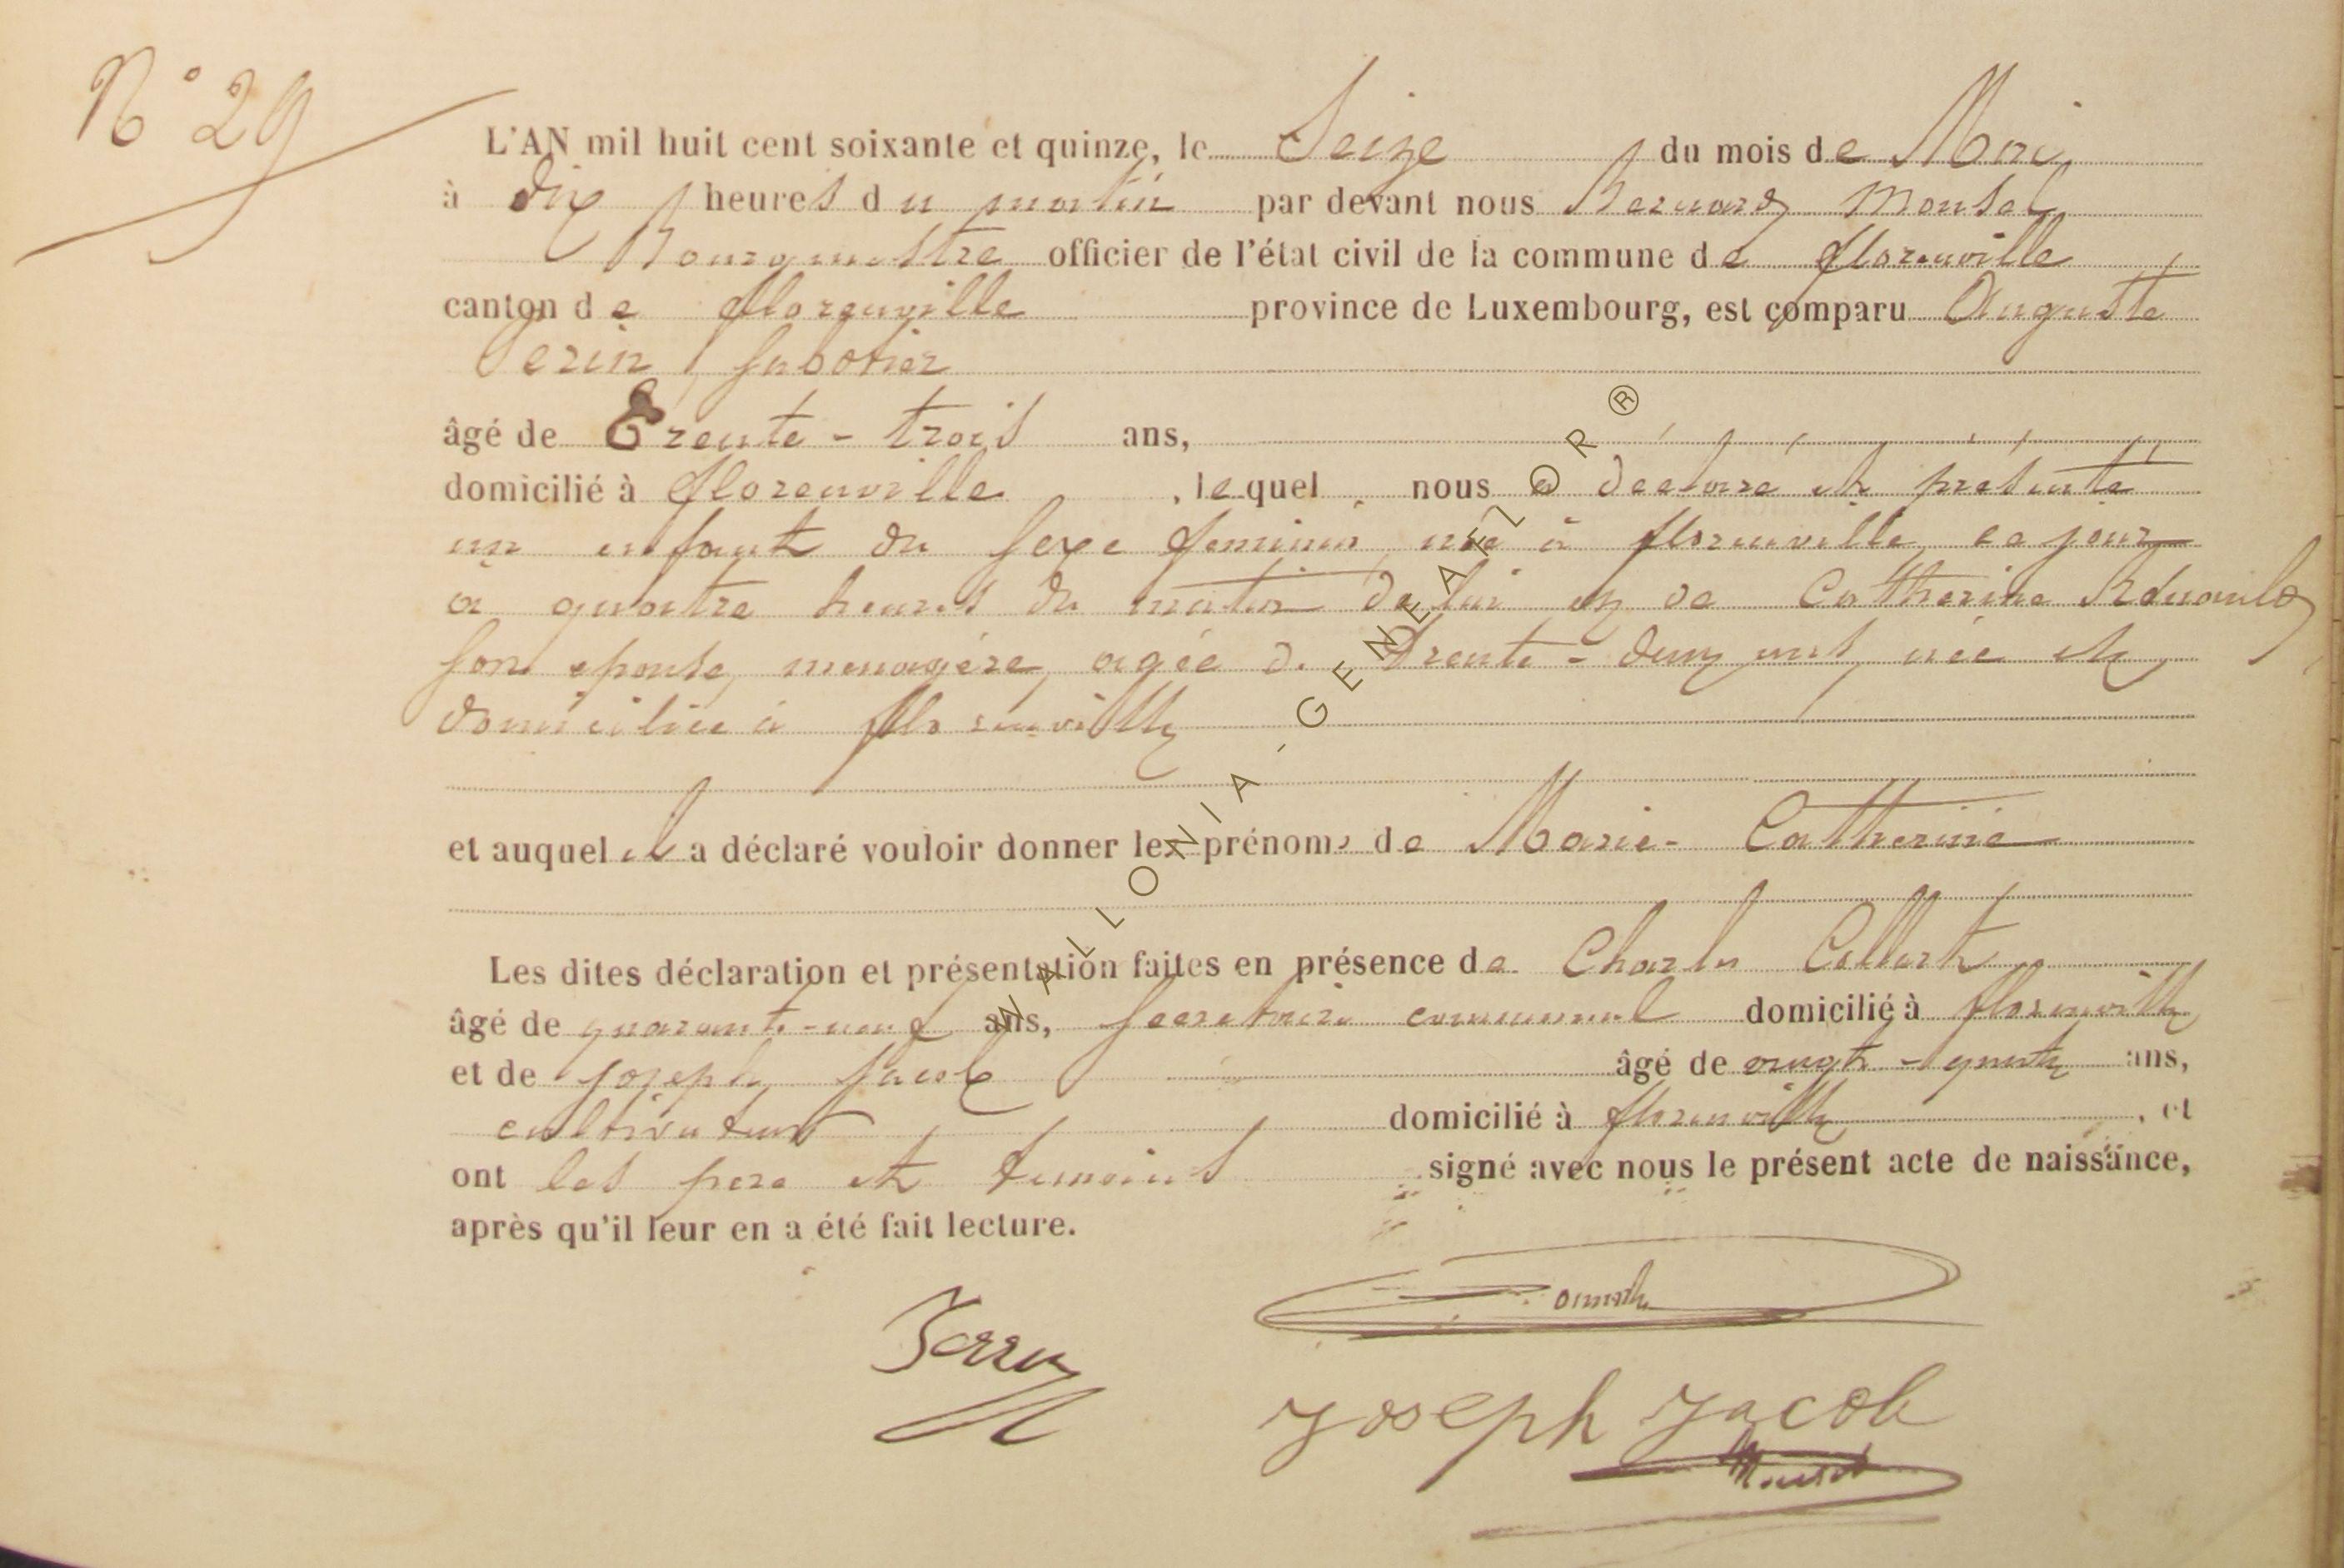 N° 29
L'AN mil huit cent soixante et quinze, le Seize du mois de Mai
à dix heures du matin par devant nous Bernard Monsel
Bourgmestre officier de l'état civil de la commune de florenville
canton de florenville province de Luxembourg, est comparu Auguste
Perin, sabotier
âgé de Trente-trois ans,
domicilié à florenville, lequel nous a déclaré et présenté
un enfant du sexe feminin, née à florenville, ce jour
à quatre heures du matin de lui et de Catherine
son epouse, menagère, agée de Trente-deux ans, née et
domiciliée à florenville
et auquel il a déclaré vouloir donner les prénoms de Marie-Catherine
Les dites déclaration et présentation faites en présence de Charles Collart
âgé de quarante-neuf ans, secretaire communal domicilié à florenville
et de joseph jacob âgé de vingt-quatre ans,
cultivateur domicilié à florenville, et
ont les pere et temoins signé avec nous le présent acte de naissance,
après qu'il leur en a été fait lecture.
joseph jacob
WALLONIA-GENEALOR®